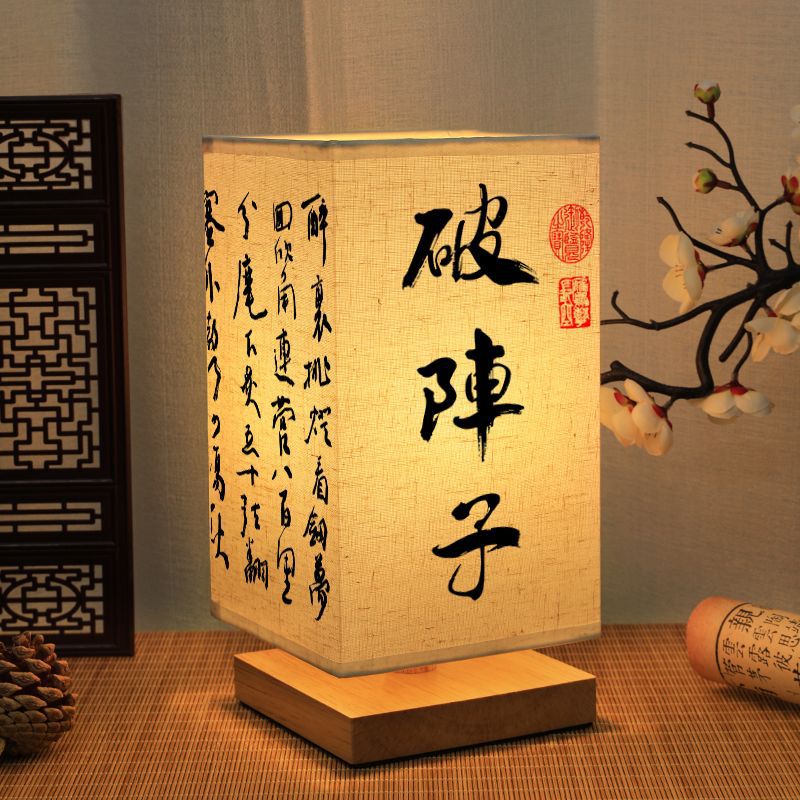 破陣子
醉裏挑燈看劍夢
回吹角連營八百里
分麾下炙五十弦翻
塞外